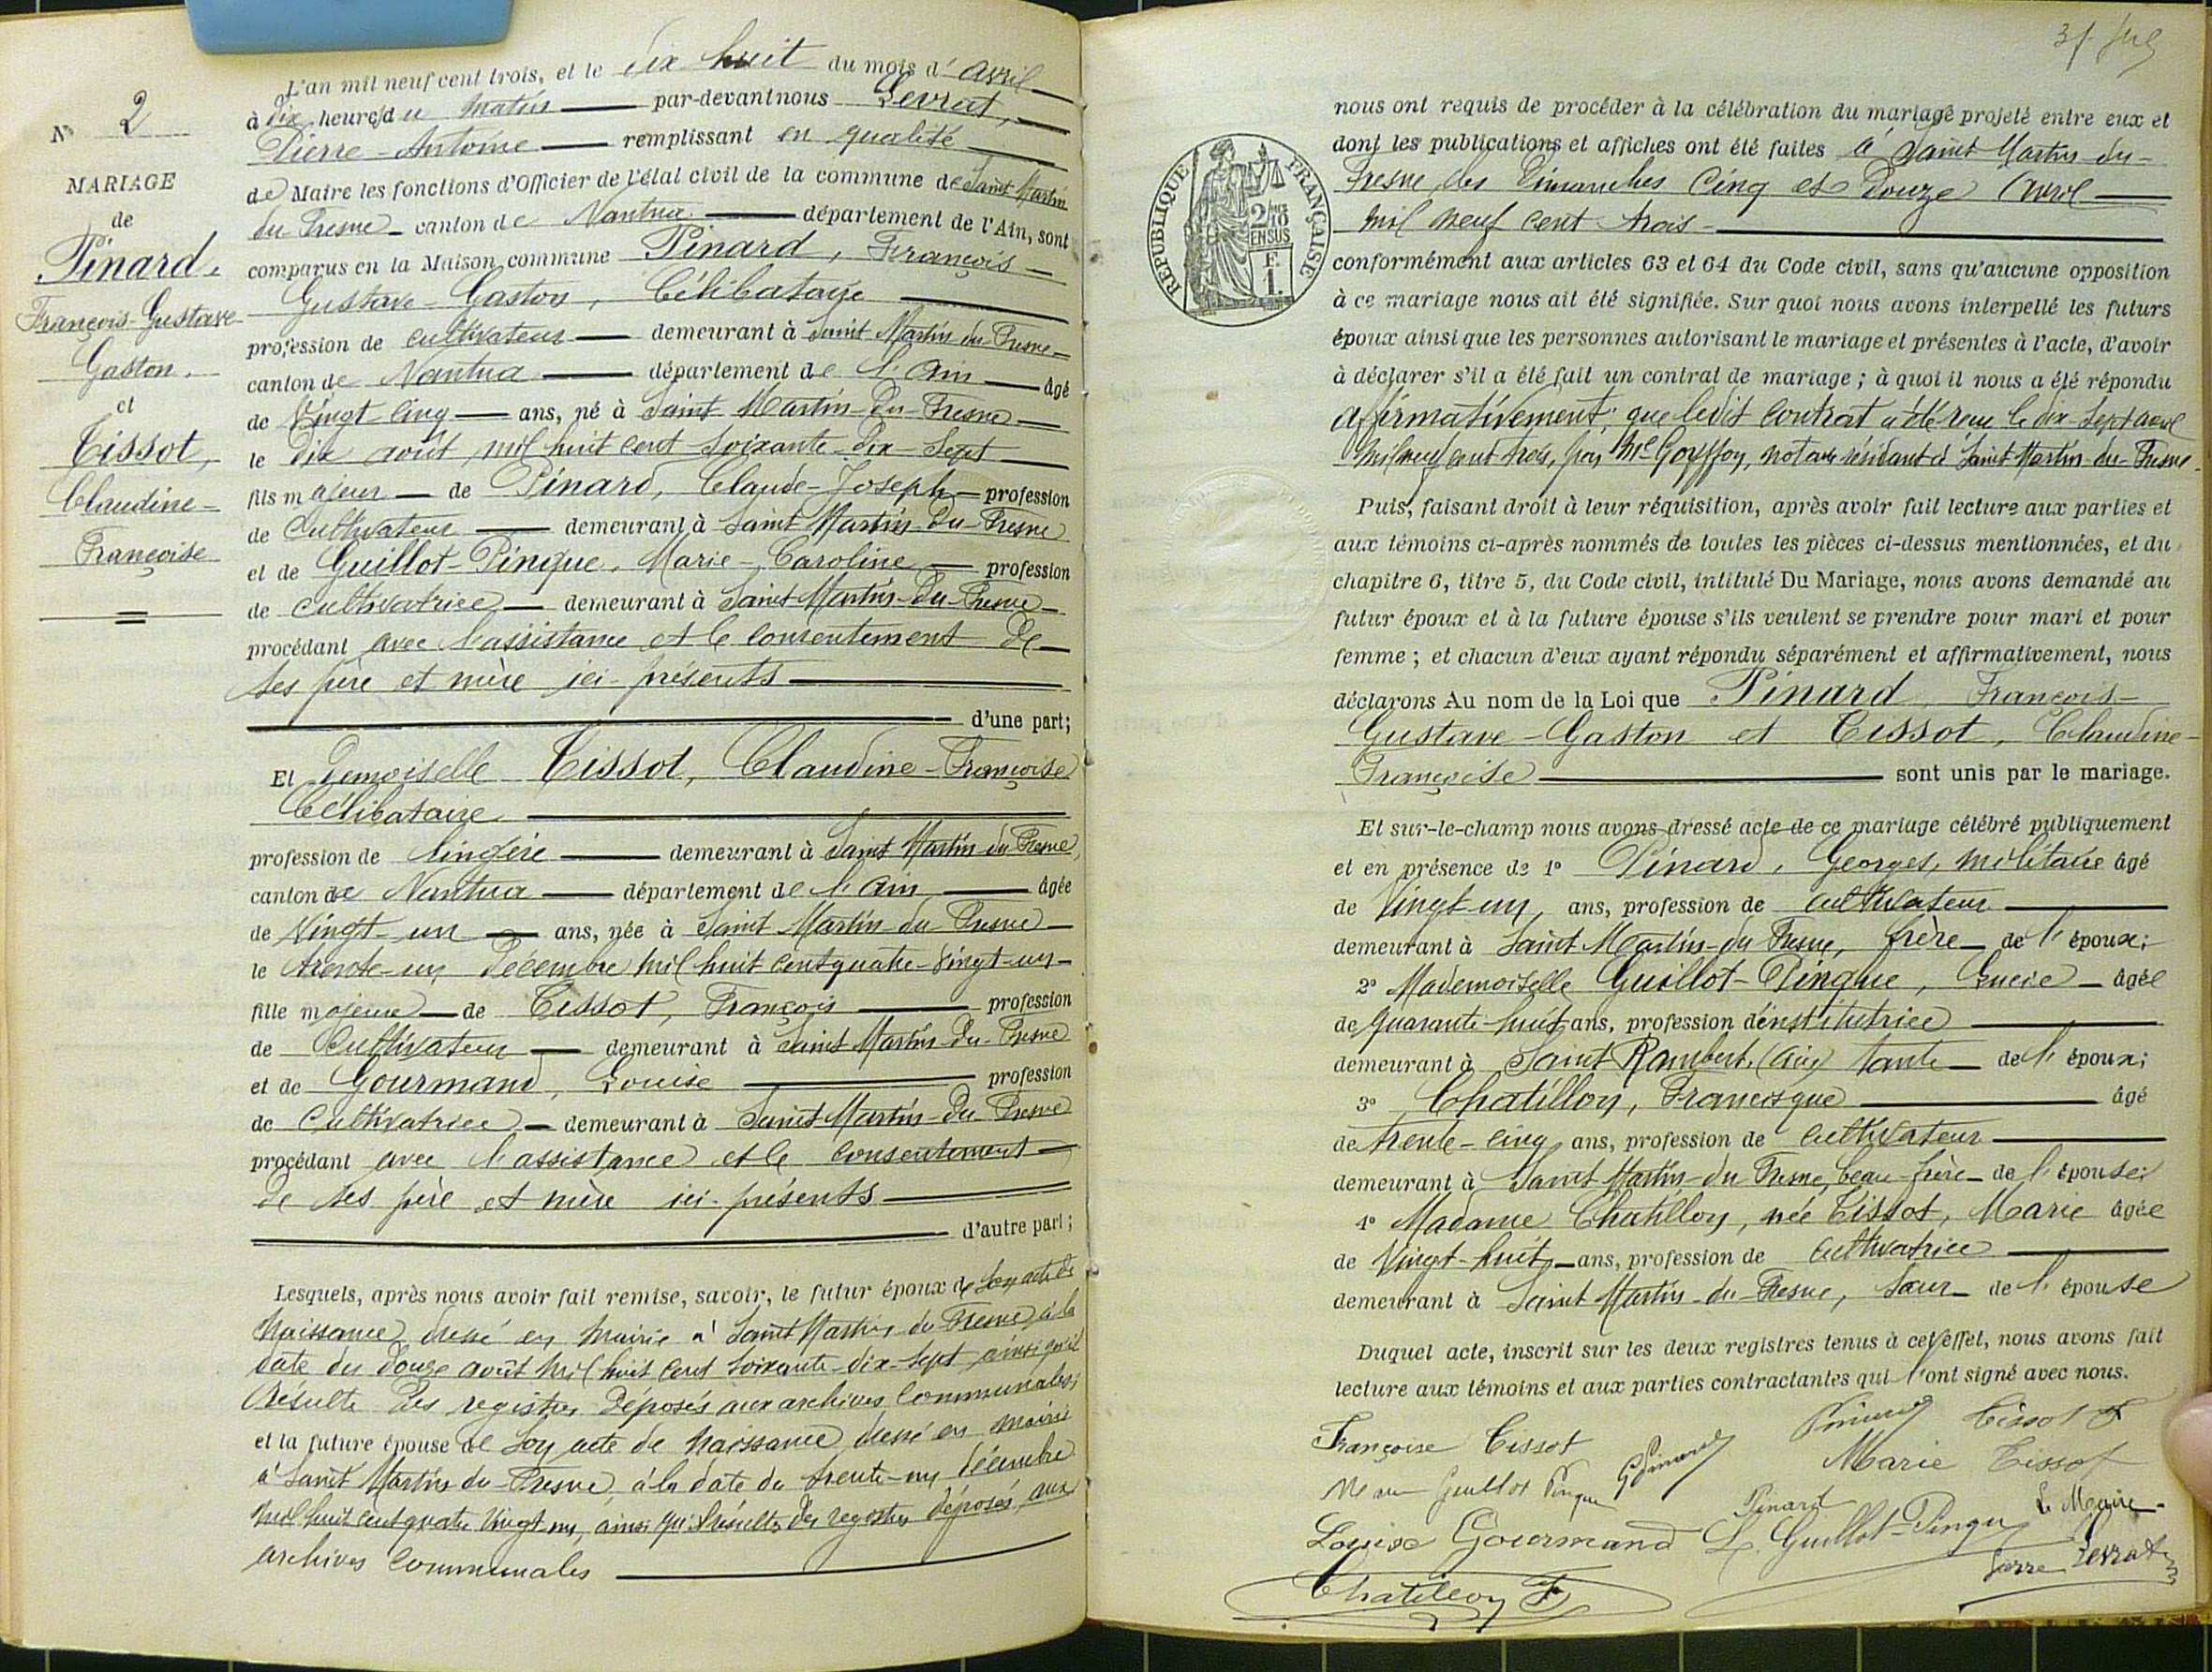 L'an mil neuf cent trois, et le dix huit du mois d'avril
à dix heures du matin par-devant nous Levrat,
Pierre-Antoine remplissant en qualité
de Maire les fonctions d'Officier de l'état civil de la commune de Saint Martin
du Fresne canton de Nantua département de l'Ain, sont
comparus en la Maison commune Pinard, François
Gustave-Gaston, Célibataire
profession de cultivateur demeurant à Saint Martin du Fresne
canton de Nantua département de l'Ain âgé
de Vingt cinq ans, né à Saint Martin-du-Fresne
le dix août, mil huit cent soixante-dix-sept
fils majeur de Pinard, Claude-Joseph profession
de Cultivateur demeurant à Saint Martin-du-Fresne
et de Guillot-Pingue, Marie-Caroline profession
de cultivatrice demeurant à Saint-Martin-du-Fresne
procédant avec l'assistance et le consentement de
ses père et mère ici-présents
d'une part;
Et Demoiselle Tissot, Claudine-Françoise
Célibataire
profession de lingère demeurant à Saint Martin du Fresne,
canton de Nantua département de l'Ain âgée
de Vingt-un ans, née à Saint Martin-du Fresne
le trente-un Décembre mil huit cent quatre-vingt-un
fille majeure de Tissot, François profession
de Cultivateur demeurant à Saint Martin-du-Fresne
et de Gourmand, Louise profession
de Cultivatrice demeurant à Saint Martin-du Fresne
procédant avec l'assistance et le consentement
de ses père et mère ici-présents
d'autre part;
Lesquels, après nous avoir fait remise, savoir, le futur époux de son acte de
Naissance dressé en mairie à Saint Martin du Fresne à la
date du douze août mil huit cent soixante-dix-sept ainsi qu'il
résulte des registres déposés aux archives communales;
et la future épouse de son acte de naissance dressé en mairie
à Saint Martin du-Fresne, à la date du trente-un décembre
mil huit cent quatre vingt un, ainsi qu'il résulte des registres déposés aux
archives communales
N° 2
MARIAGE
de
Pinard,
François-Gustave
Gaston.
et
Tissot,
Claudine-
Françoise
nous ont requis de procéder à la célébration du mariage projeté entre eux et
dont les publications et affiches ont été faites à Saint Martin-du-
Fresne les Dimanches Cinq et Douze Avril
mil neuf cent trois
conformément aux articles 63 et 64 du Code civil, sans qu'aucune opposition
à ce mariage nous ait été signifiée. Sur quoi nous avons interpellé les futurs
époux ainsi que les personnes autorisant le mariage et présentes à l'acte, d'avoir
à déclarer s'il a été fait un contrat de mariage; à quoi il nous a été répondu
affirmativement; que ledit contrat a été reçu le dix-sept avril
mil neuf cent trois, par Me Goyffon, notaire résidant à Saint Martin-du-Fresne.
Puis, faisant droit à leur réquisition, après avoir fait lecture aux parties et
aux témoins ci-après nommés de toutes les pièces ci-dessus mentionnées, et du
chapitre 6, titre 5, du Code civil, intitulé Du Mariage, nous avons demandé au
futur époux et à la future épouse s'ils veulent se prendre pour mari et pour
femme; et chacun d'eux ayant répondu séparément et affirmativement, nous
déclarons Au nom de la Loi que Pinard François-
Gustave-Gaston et Tissot, Claudine-
Françoise sont unis par le mariage.
Et sur-le-champ nous avons dressé acte de ce mariage célébré publiquement
et en présence de 1° Pinard, Georges, militaire âgé
de Vingt-un ans, profession de cultivateur
demeurant à Saint Martin-du Fresne, frère de l'époux;
2° Mademoiselle Guillot-Pingue, Lucie âgée
de quarante-huit ans, profession d'institutrice
demeurant à Saint Rambert, (Ain) tante de l'époux;
3° Chatillon, Francisque âgé
de trente-cinq ans, profession de cultivateur
demeurant à Saint Martin-du Fresne, beau-frère de l'épouse;
4° Madame Chatillon, née Tissot, Marie âgée
de Vingt-huit ans, profession de Cultivatrice
demeurant à Saint Martin-du-Fresne, sœur de l'épouse
Duquel acte, inscrit sur les deux registres tenus à cet effet, nous avons fait
lecture aux témoins et aux parties contractantes qui l'ont signé avec nous.
Françoise Tissot
GPinard
Pinard
Tissot F
Guillot Pingue
Marie Tissot
Pinard
Le Maire
Louise Gourmand
L. Guillot-Pingue
Pierre Levrat
Chatillon F
RÉPUBLIQUE FRANÇAISE
2/10
EN SUS
F.
1.